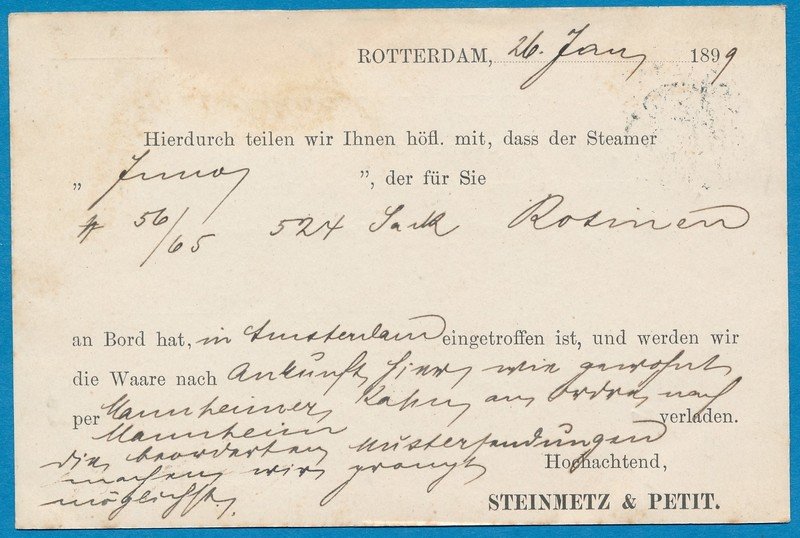 ROTTERDAM, 26. Jan 1899
Hierdurch teilen wir Ihnen höfl. mit, dass der Steamer
„ Juno ”, der für Sie
# 56/65 524 Sack Rosinen
an Bord hat, in Amsterdam eingetroffen ist, und werden wir
die Waare nach Ankunft hier wie gewohnt
per Mannheimer Kahn an Ordre nach
Mannheim verladen.
die beorderten Mustersendungen
machen wir prompt Hochachtend,
möglichst.
STEINMETZ & PETIT.